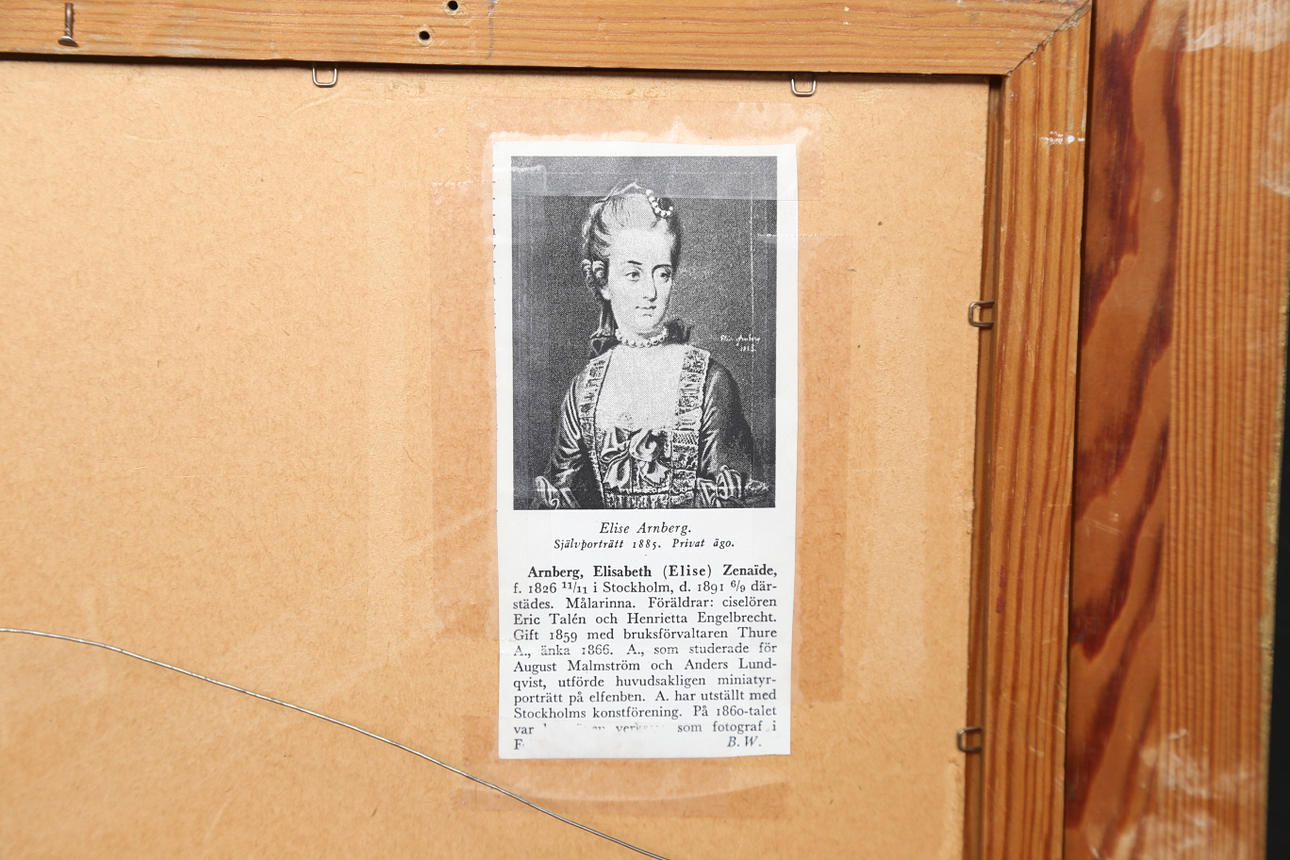 Elise Arnberg
1885.
Elise Arnberg.
Självporträtt 1885. Privat ägo.
Arnberg, Elisabeth (Elise) Zenaïde,
f. 1826 11/11 i Stockholm, d. 1891 6/9 där-
städes. Målarinna. Föräldrar: ciselören
Eric Talén och Henrietta Engelbrecht.
Gift 1859 med bruksförvaltaren Thure
A., änka 1866. A., som studerade för
August Malmström och Anders Lund-
qvist, utförde huvudsakligen miniatyr-
porträtt på elfenben. A. har utställt med
Stockholms konstförening. På 1860-talet
var som fotograf i
B. W.